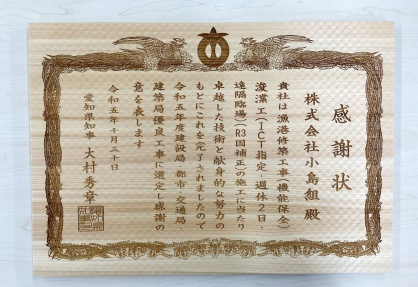 感謝状
株式会社小島組 殿
貴社は漁港修築工事(機能保全)
浚渫工(ICT指定・週休2日・
遠隔臨場)(R3国補正)の施工に当たり
卓越した技術と献身的な努力の
もとにこれを完了されましたので
令和五年度建設局 都市・交通局
建築局優良工事に選定し感謝の
意を表します
令和五年十月二十日
愛知県知事 大村秀章